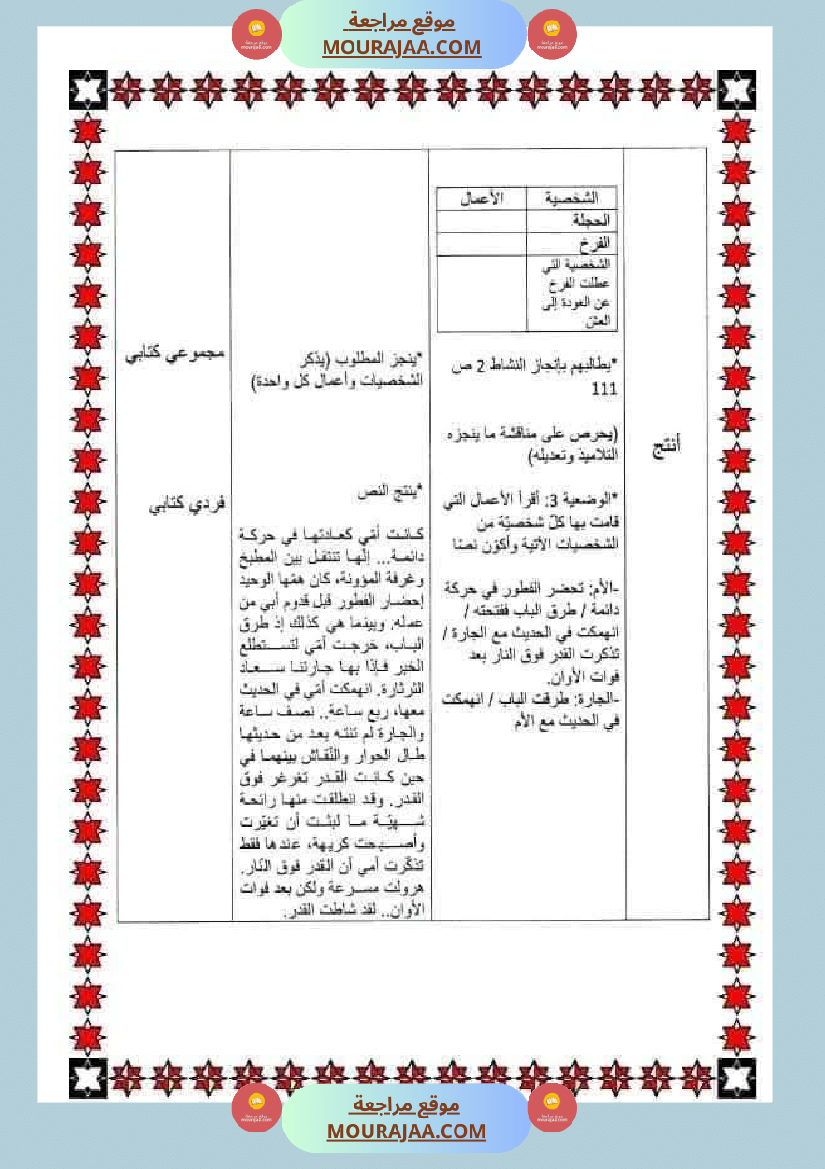 موقع مراجعة
MOURAJAA.COM
أنتج
الشخصية الأعمال
الحجلة
الفرخ
الشخصية التي
عطلت الفرخ
عن العودة إلى
العش
*يطالبهم بإنجاز النشاط 2 ص
111
(يحرص على مناقشة ما ينجزه
التلاميذ وتعديله)
*الوضعية 3: أقرأ الأعمال التي
قامت بها كلّ شخصيّة من
الشخصيات الآتية وأكوّن نصّا
-الأم: تحضر الفطور في حركة
دائمة / طرق الباب ففتحته /
انهمكت في الحديث مع الجارة /
تذكرت القدر فوق النار بعد
فوات الأوان.
-الجارة: طرقت الباب / انهمكت
في الحديث مع الأم
*ينجز المطلوب (يذكر
الشخصيات وأعمال كل واحدة)
*ينتج النص
كانت أمّي كعادتها في حركة
دائمة... إنّها تتنقل بين المطبخ
وغرفة المؤونة، كان همّها الوحيد
إحضار الفطور قبل قدوم أبي من
عمله. وبينما هي كذلك إذ طرق
الباب، خرجت أمّي لتستطلع
الخبر فإذا بها جارتنا سعاد
الثرثارة. انهمكت أمّي في الحديث
معها، ربع ساعة.. نصف ساعة
والجارة لم تنته بعد من حديثها
طال الحوار والنّقاش بينهما في
حين كانت القدر تغرغر فوق
القدر. وقد انطلقت منها رائحة
شهيّة ما لبثت أن تغيّرت
وأصبحت كريهة، عندها فقط
تذكّرت أمي أن القدر فوق النّار.
هرولت مسرعة ولكن بعد فوات
الأوان.. لقد شاطت القدر.
مجموعي كتابي
فردي كتابي
موقع مراجعة
MOURAJAA.COM